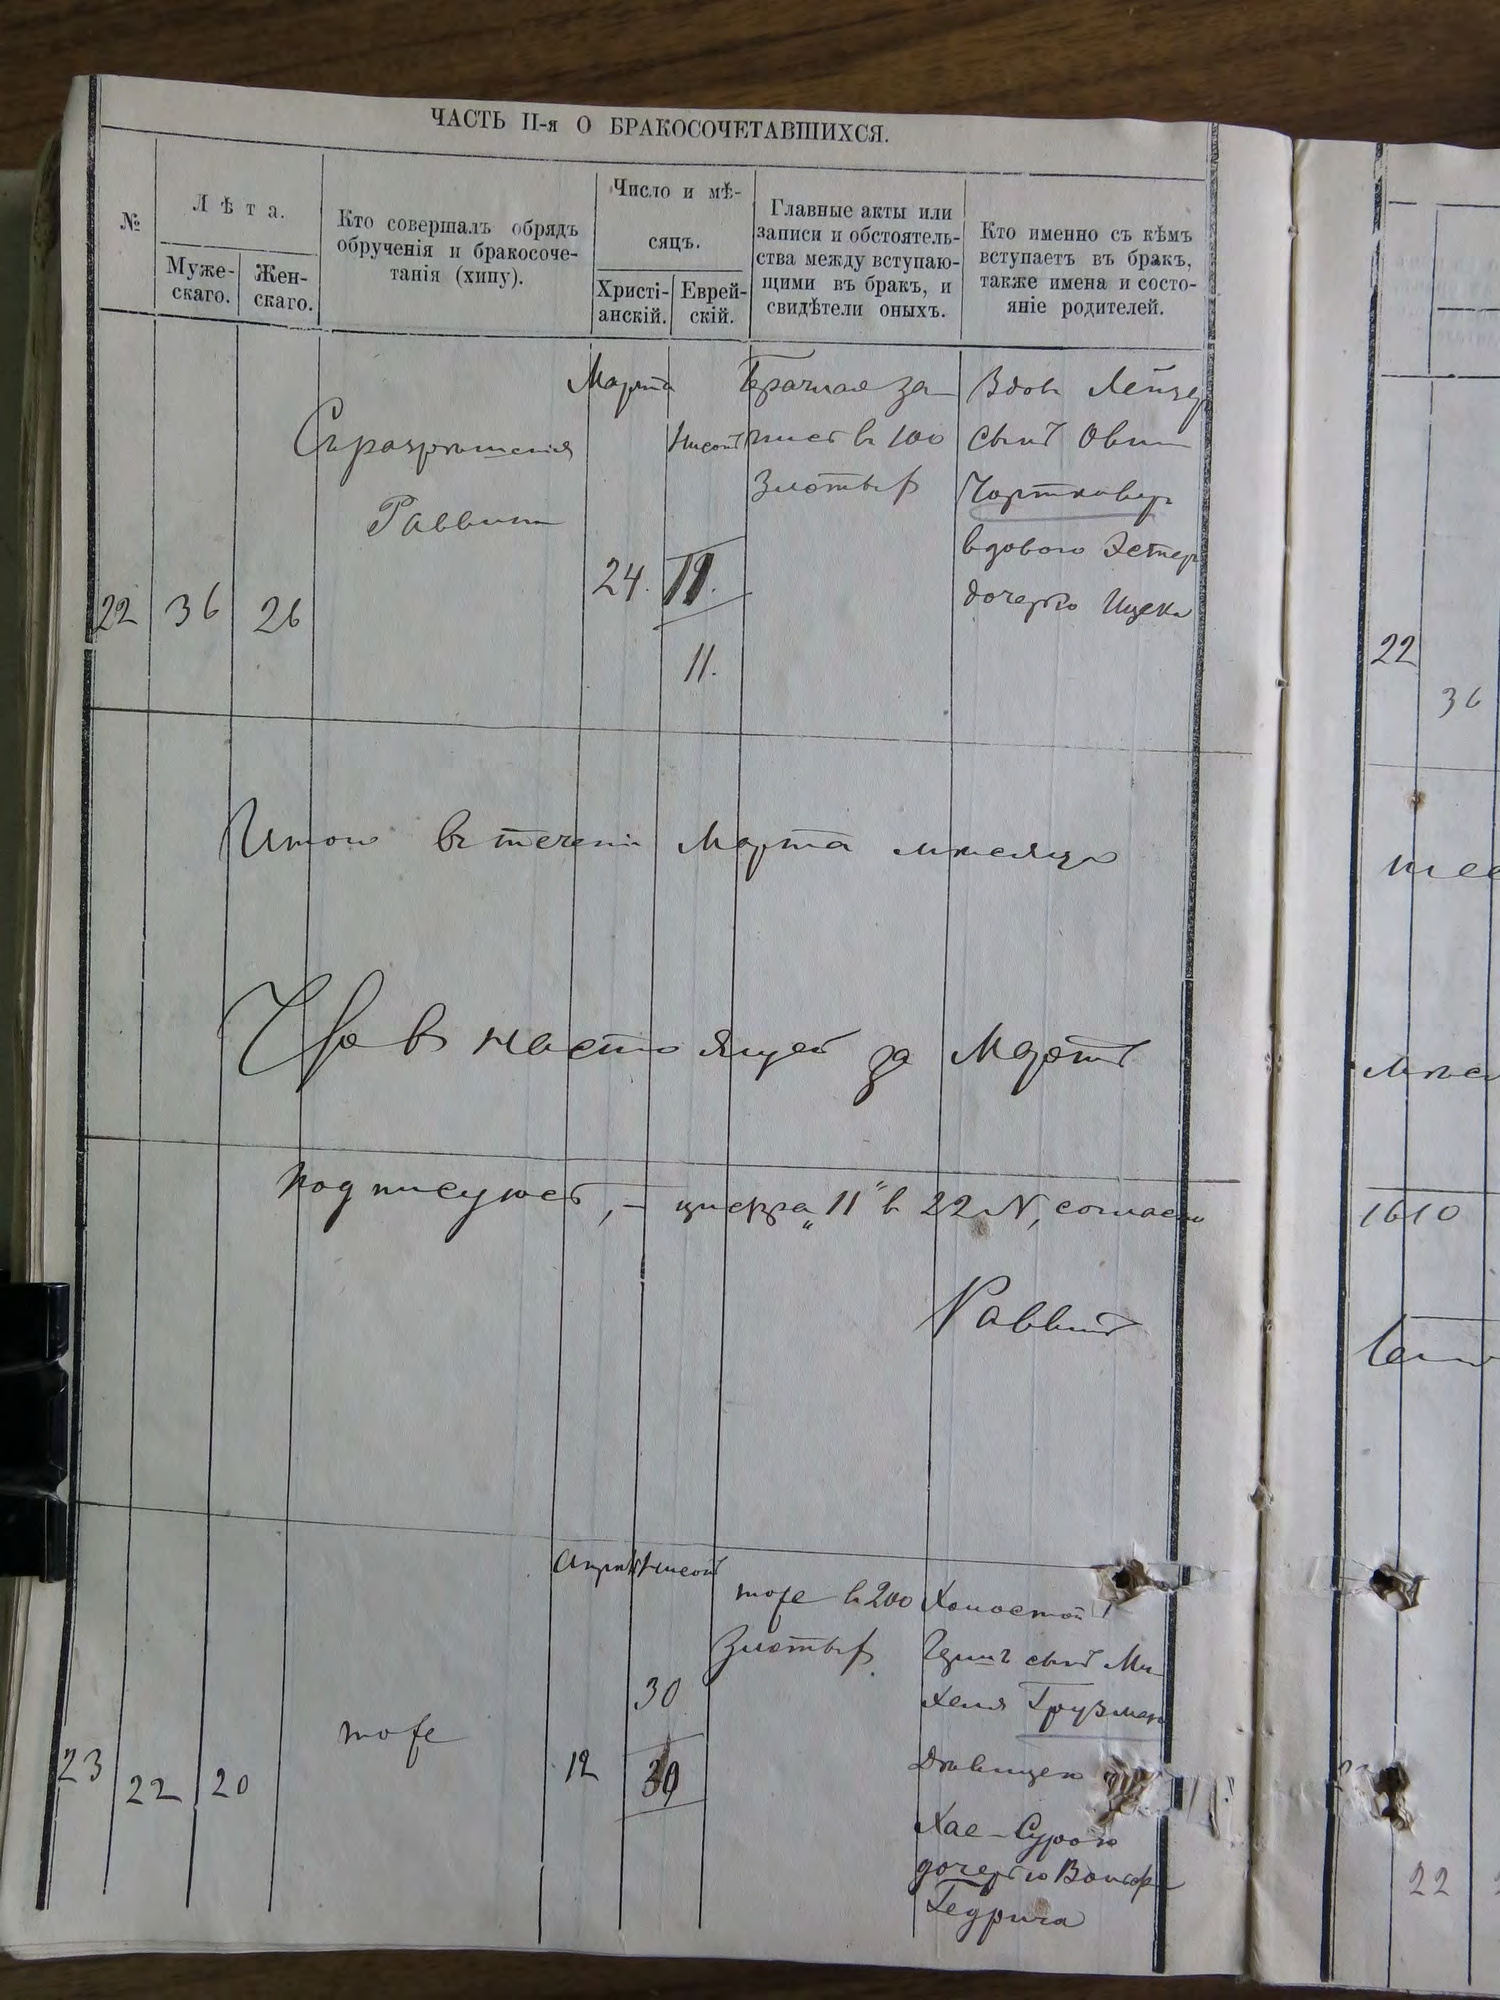 ЧАСТЬ II-я О БРАКОСОЧЕТАВШИХСЯ.
№
Лѣта.
Муже-
скаго.
Жен-
скаго.
Кто совершалъ обрядъ
обрученія и бракосоче-
танія (хипу).
Число и мѣ-
сяцъ.
Христі-
анскій.
Еврей-
скій.
Главные акты или
записи и обстоятель-
ства между вступаю-
щими въ бракъ, и
свидѣтели оныхъ.
Кто именно съ кѣмъ
вступаетъ въ бракъ,
также имена и состо-
яніе родителей.
22
36
26
Съ разрѣшенія
Раввина
Марта
24.
Нисонъ
11.
11.
Брачная за-
пись въ 100
злотыхъ
Вдов Лейзер
сынъ Овши
Чортковер
вдовою Эстер
дочерью Ицека
Итого въ теченіи Марта мѣсяца
в настоящей за Мартъ
подписуюсь, - цифра „11" в 22 N, согласно
Раввинъ
23
22
20
тоже
12
Нисонъ
30
30
тоже въ 200
злотыхъ
Холостой
сынъ Ми-
хеля Грузман
дѣвицею
Хае-Сурою
дочерью Вольфа
Гедрича
22
36
1610
22